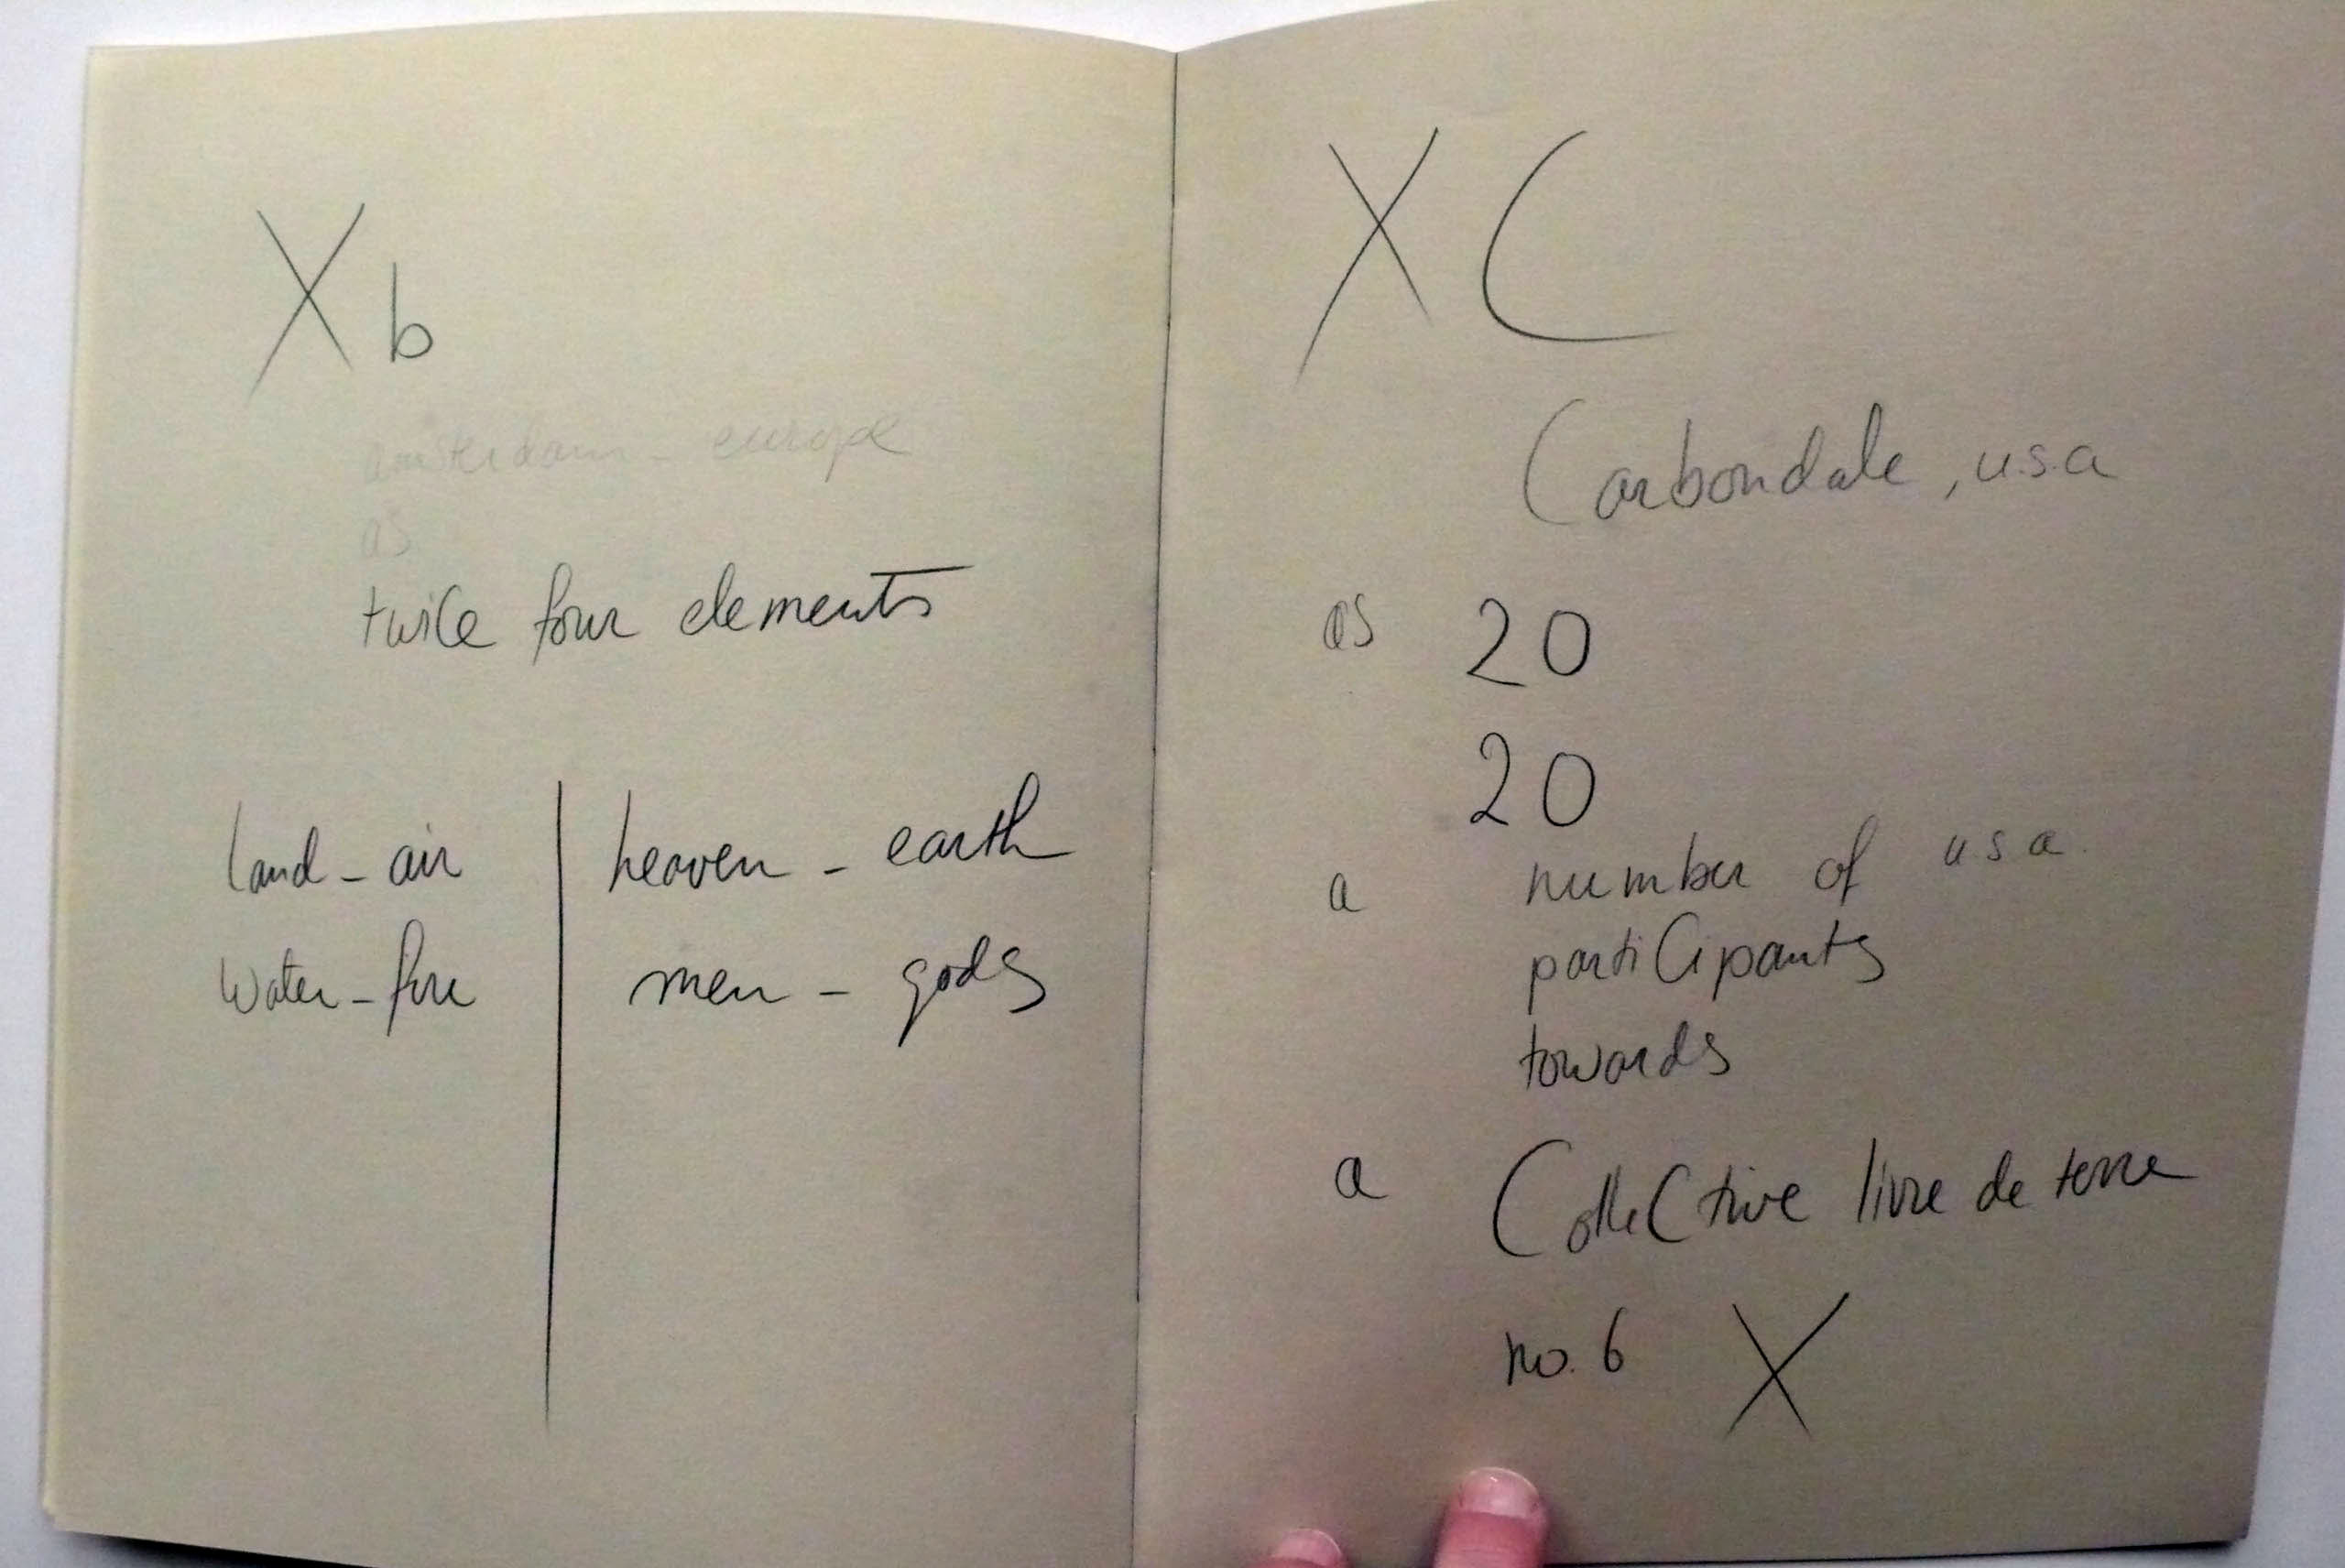 Xb
amsterdam - europe
as
twice four elements
land - air | heaven - earth
water - fire | men - gods
XC
Carbondale, u.s.a
as 20
20
a number of u s a.
partiCipants
towards
a ColleCtive livre de terre
no. 6 X